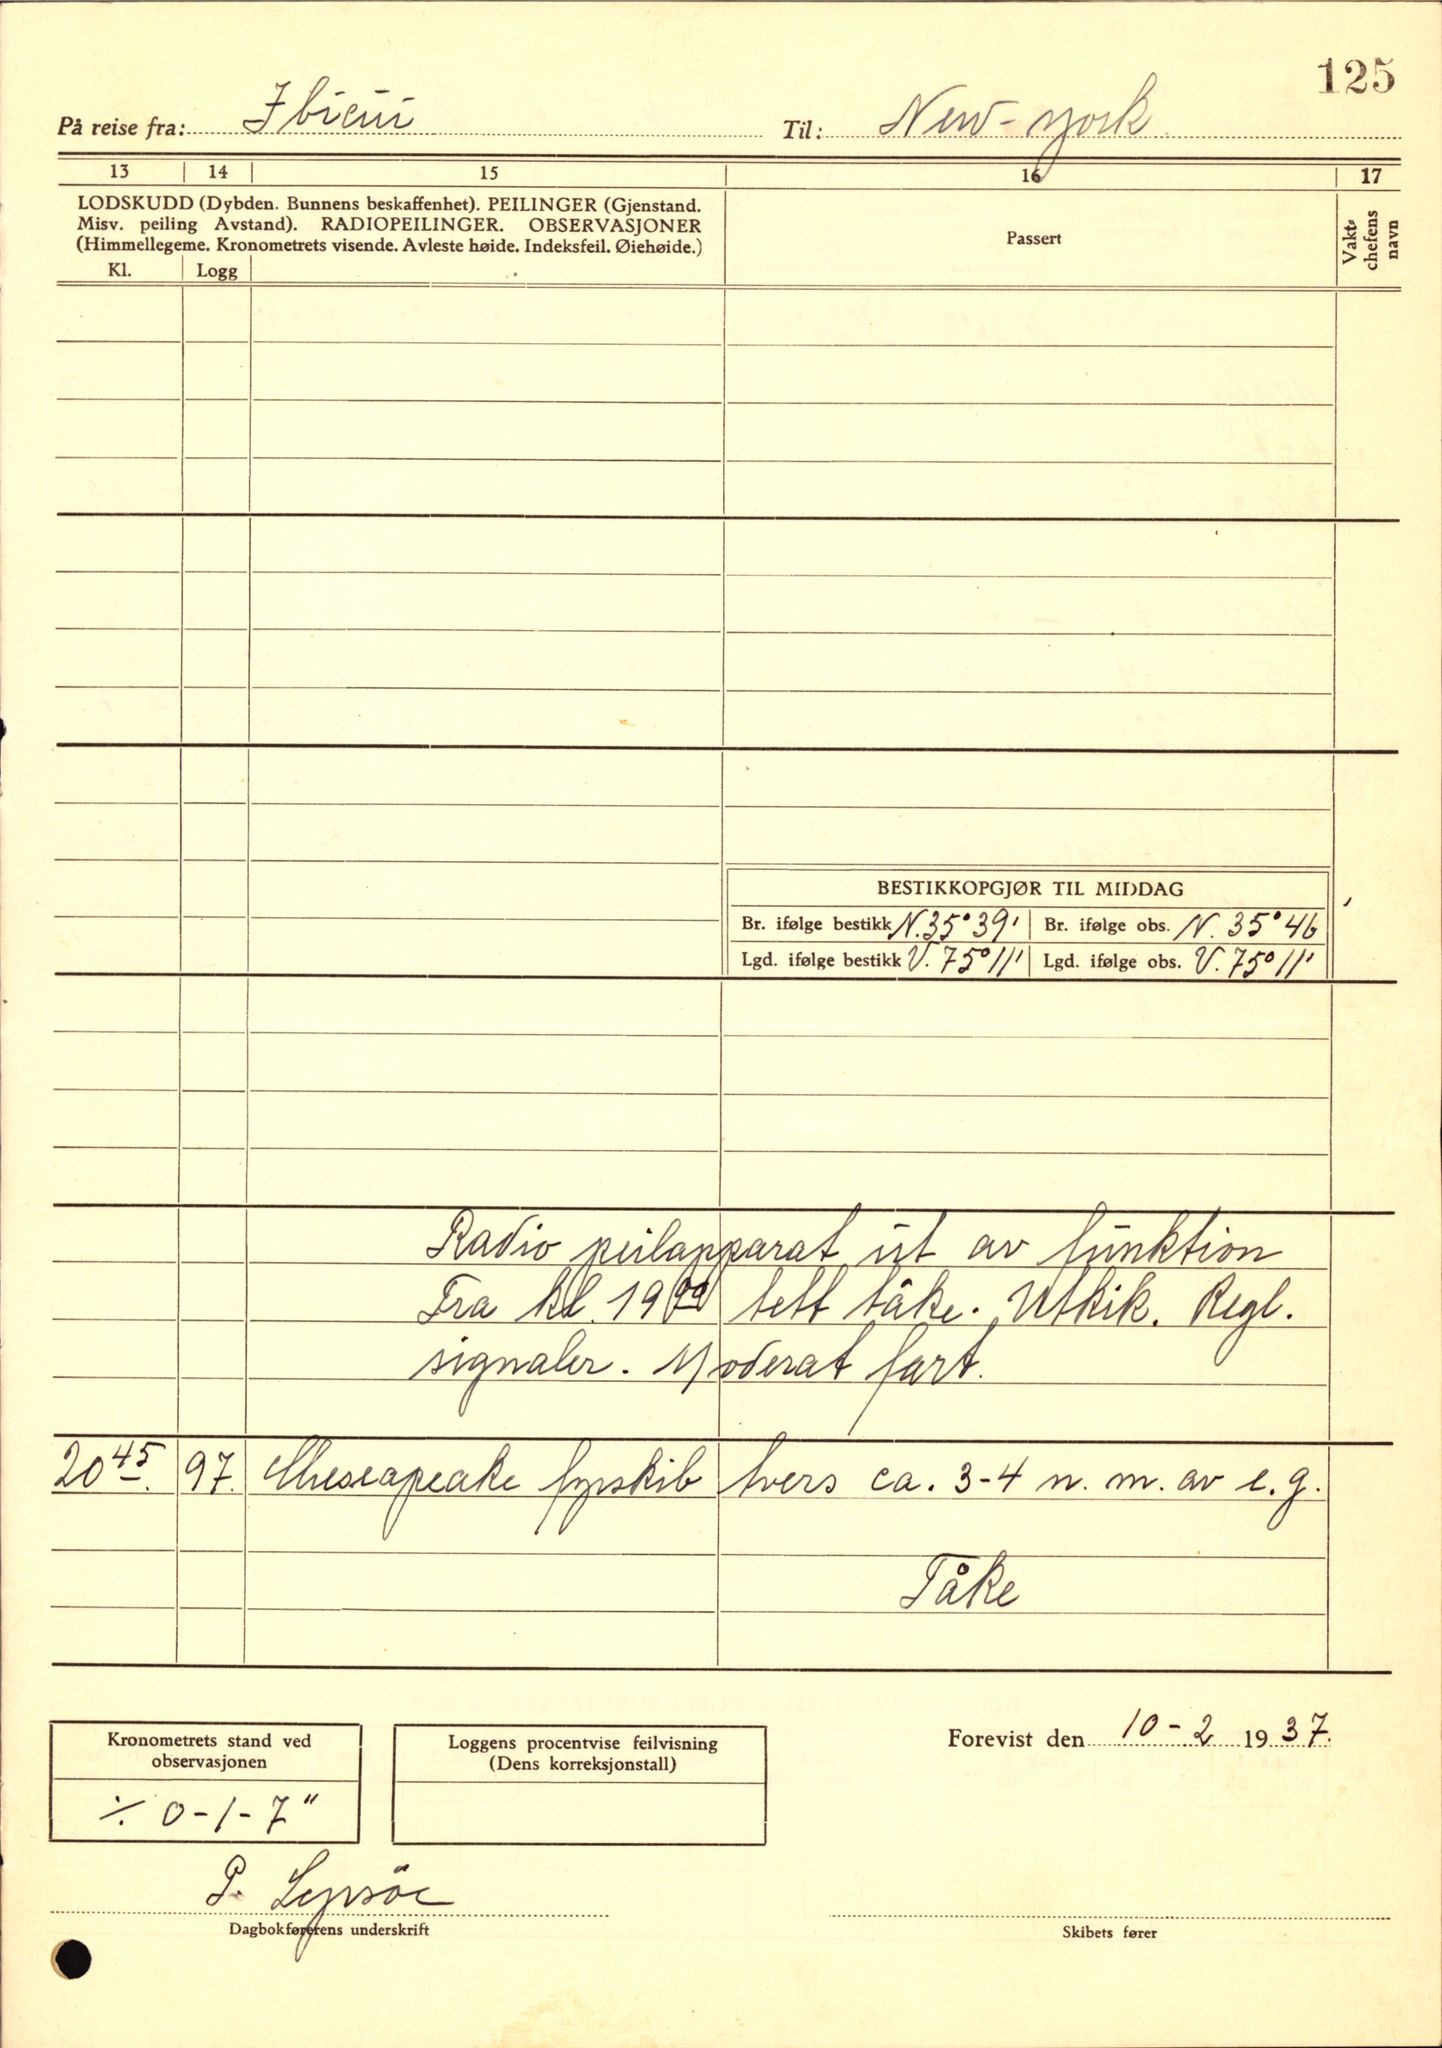 125
På reise fra: Ibicui Til: New-york
13 14 15 16 17
LODSKUDD (Dybden. Bunnens beskaffenhet). PEILINGER (Gjenstand.
Misv. peiling Avstand). RADIOPEILINGER. OBSERVASJONER
(Himmellegeme. Kronometrets visende. Avleste høide. Indeksfeil. Øiehøide.)
Kl. Logg
Passert
Vakt-
chefens
navn
BESTIKKOPGJØR TIL MIDDAG
Br. ifølge bestikk N. 35° 39' Br. ifølge obs. N. 35° 46
Lgd. ifølge bestikk V. 75° 11' Lgd. ifølge obs. V. 75° 11'
Radio peilapparat ut av funktion
Fra kl. 19 00 tett tåke. Utkik. Regl.
signaler. Moderat fart.
20 45. 97. Cheseapeake fyrskib tvers ca. 3-4 n. m. av e. g.
Tåke
Kronometrets stand ved
observasjonen
÷ 0-1-7"
Loggens procentvise feilvisning
(Dens korreksjonstall)
Forevist den 10-2 1937.
P. Lepsöe
Dagbokførerens underskrift
Skibets fører